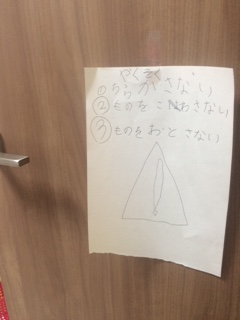 やくそく
①ちらかさない
②ものをこわさない
③ものをおとさない